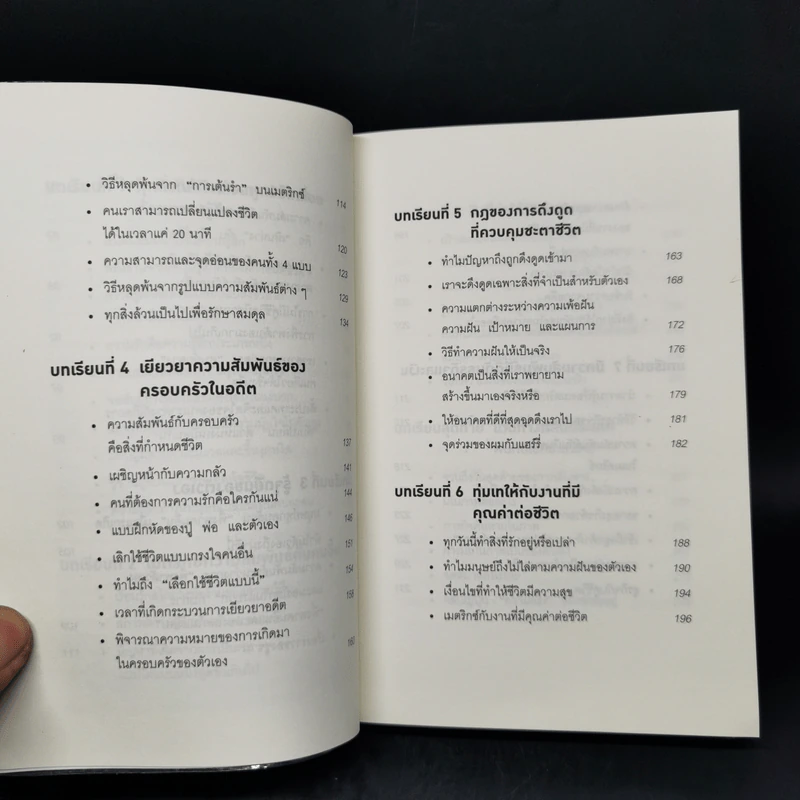 • วิธีหลุดพ้นจาก “การเต้นรำ” บนเมตริกซ์ 114
• คนเราสามารถเปลี่ยนแปลงชีวิต
ได้ในเวลาแค่ 20 นาที 120
• ความสามารถและจุดอ่อนของคนทั้ง 4 แบบ 123
• วิธีหลุดพ้นจากรูปแบบความสัมพันธ์ต่าง ๆ 129
• ทุกสิ่งล้วนเป็นไปเพื่อรักษาสมดุล 134
บทเรียนที่ 4 เยียวยาความสัมพันธ์ของ
ครอบครัวในอดีต
• ความสัมพันธ์กับครอบครัว
คือสิ่งที่กำหนดชีวิต 137
• เผชิญหน้ากับความกลัว 141
• คนที่ต้องการความรักคือใครกันแน่ 144
• แบบฝึกหัดของปู่ พ่อ และตัวเอง 146
• เลิกใช้ชีวิตแบบเกรงใจคนอื่น 151
• ทำไมถึง “เลือกใช้ชีวิตแบบนี้” 154
• เวลาที่เกิดกระบวนการเยียวยาอดีต 158
• พิจารณาความหมายของการเกิดมา
ในครอบครัวของตัวเอง 160
บทเรียนที่ 5 กฎของการดึงดูด
ที่ควบคุมชะตาชีวิต
• ทำไมปัญหาถึงถูกดึงดูดเข้ามา 163
• เราจะดึงดูดเฉพาะสิ่งที่จำเป็นสำหรับตัวเอง 168
• ความแตกต่างระหว่างความเพ้อฝัน
ความฝัน เป้าหมาย และแผนการ 172
• วิธีทำความฝันให้เป็นจริง 176
• อนาคตเป็นสิ่งที่เราพยายาม
สร้างขึ้นมาเองจริงหรือ 179
• ให้อนาคตที่ดีที่สุดฉุดดึงเราไป 181
• จุดร่วมของผมกับแฮร์รี่ 182
บทเรียนที่ 6 ทุ่มเทให้กับงานที่มี
คุณค่าต่อชีวิต
• ทุกวันนี้ทำสิ่งที่รักอยู่หรือเปล่า 188
• ทำไมมนุษย์ถึงไม่ไล่ตามความฝันของตัวเอง 190
• เงื่อนไขที่ทำให้ชีวิตมีความสุข 194
• เมตริกซ์กับงานที่มีคุณค่าต่อชีวิต 196